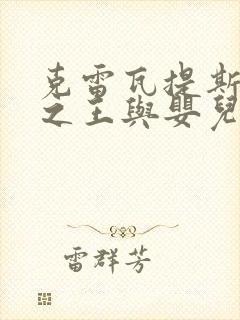 克雷瓦提斯
之王與嬰兒
雷群芳